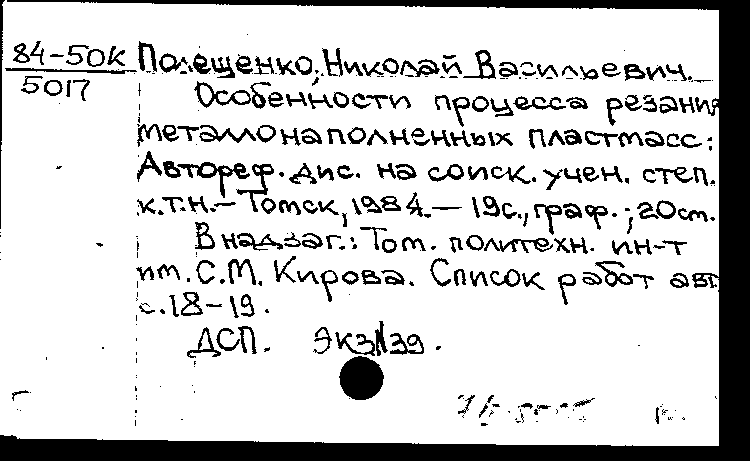 84-50К Полещенко, Николай Васильевич.
5017
Особенности процесса резания
металлонаполненных пластмасс:
Автореф. дис. на соиск. учен. степ.
к.т.н. – Томск, 1984. – 19с., граф.; 20см.
В надзаг.: Том. политехн. ин-т
им. С.М. Кирова. Список работ авт.
с. 18-19.
ДСП. Экз N39.